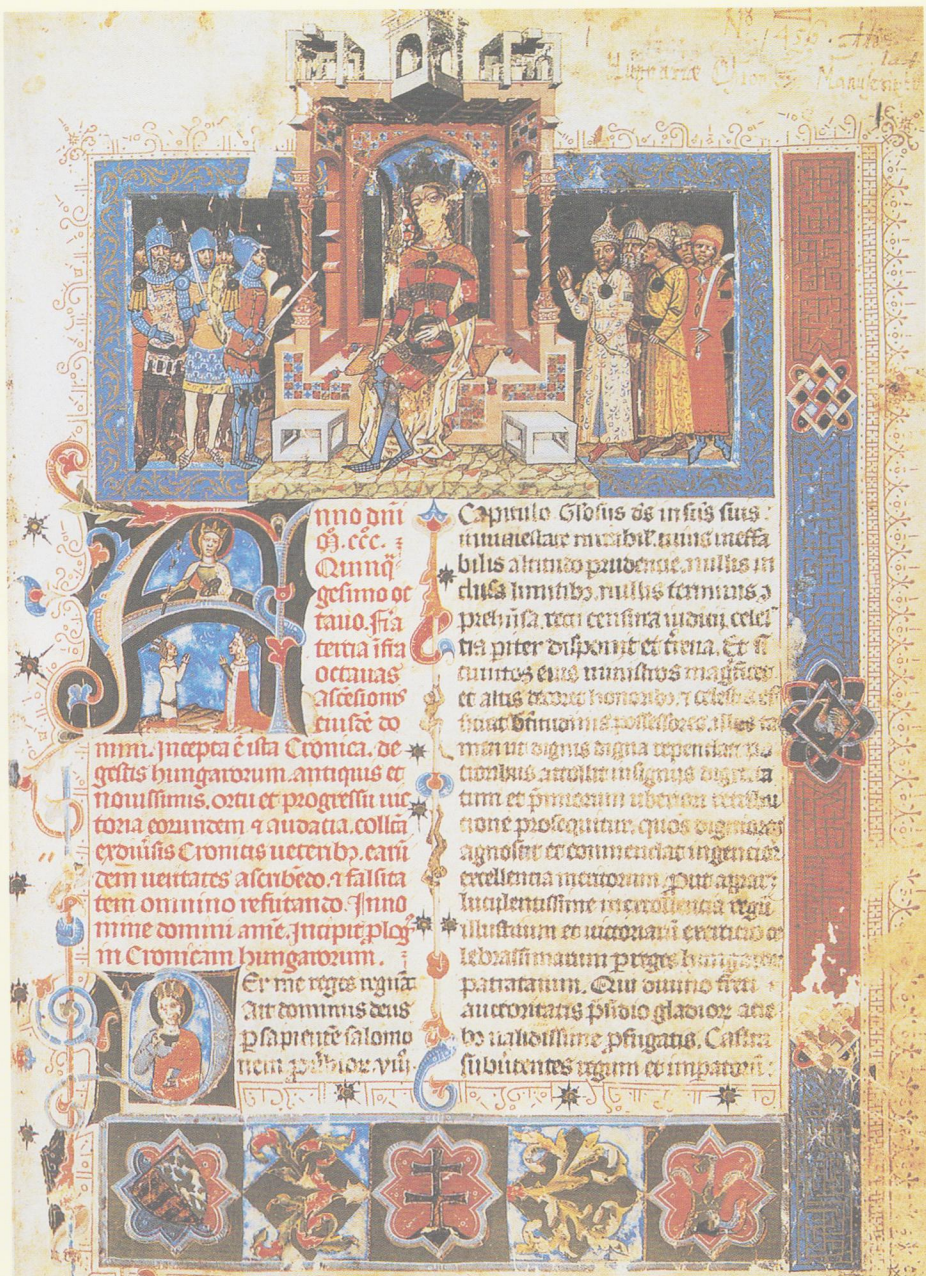 Nº. 1459.
Hungariæ
Manuscript
Anno dñi
M. ccc. ⁊
Quinq̃
gesimo oc
tauo. ffia
tertia ĩfra
octauas
Ascẽsionis
eiusdẽ do
mini. Incepta ẽ ista Cronica. de
gestis hungarorum. antiquis et
nouissimis. ortu et progressu uic
toria eorundem ⁊ audatia. collcã
ex diũsis Cronicis ueteribꝫ. earũ
dem ueritates ascribẽdo. ⁊ falsita
tem omnino refutando. In no
mine domini amẽ. Incipit plog̃
in Cronicam hungarorum.
Per me reges regnãt
Ait dominus deus
ꝑ sapiente salomo
nem ꝓũbior. viij.
Capitulo. Glõsus dš in sc̃is suis
in maiestate mirabil'. cuius ineffa
bilis altitudo prudencie. nullis in
clusa limitibꝫ. nullis terminis ꝯ
prehũsa. recti censura iudicij. celes
tia piter disponit et terena. Et
eius ministros
et altis decoret honoribꝫ ⁊
ficiat possessores. illos
men ut dignis digna rependat
cionibus attollit insignijs
tum et
cione prosequitur. quos digniores
agnoscit et commendat ingencior
excellencia meritorum. Prout
luculentissime in excellencia regũ
illustrium et uictoriarũ exercicio ce
lebrassimarum ꝑ reges hungarie
patratarum. Qui diuino freti
auctoritatis p̃sidio gladior acie
bꝫ ualidissime ꝓfligatis. Castra
subiũtentes regum et impator̃